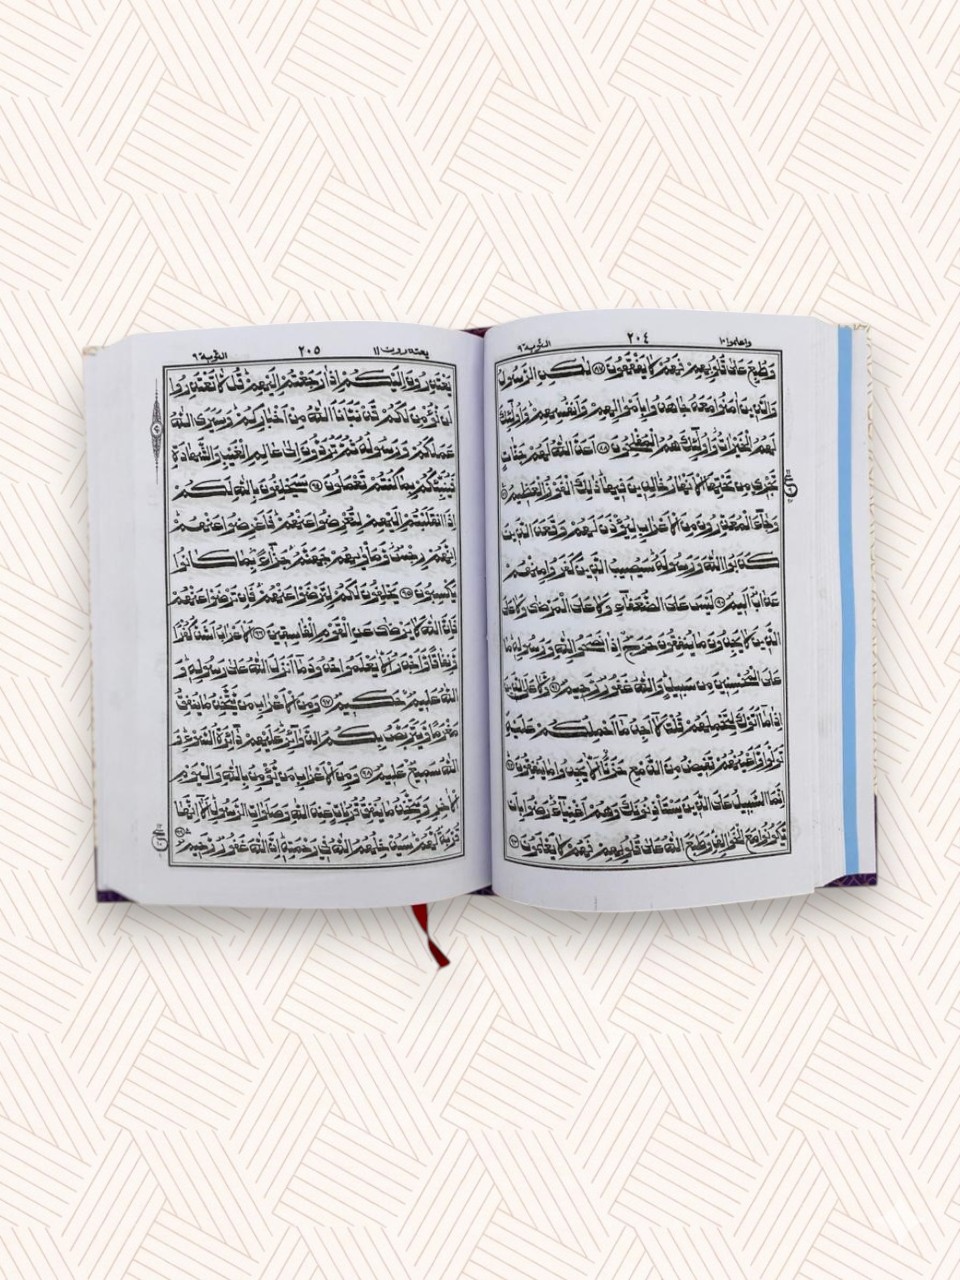 واعلموا ١٠ ٢٠٤ التوبة ٩
وطبع على قلوبهم فهم لا يفقهون ٨٧ لكن الرسول
والذين امنوا معه جاهدوا باموالهم وانفسهم واولئك
لهم الخيرات واولئك هم المفلحون ٨٨ اعد الله لهم جنات
تجري من تحتها الانهار خالدين فيها ذلك الفوز العظيم ٨٩
وجاء المعذرون من الاعراب ليؤذن لهم وقعد الذين
كذبوا الله ورسوله سيصيب الذين كفروا منهم
عذاب اليم ٩٠ ليس على الضعفاء ولا على المرضى ولا على
الذين لا يجدون ما ينفقون حرج اذا نصحوا لله ورسوله ما
على المحسنين من سبيل والله غفور رحيم ٩١ ولا على الذين
اذا ما اتوك لتحملهم قلت لا اجد ما احملكم عليه
تولوا واعينهم تفيض من الدمع حزنا الا يجدوا ما ينفقون ٩٢
انما السبيل على الذين يستأذنونك وهم اغنياء رضوا بان
يكونوا مع الخوالف وطبع الله على قلوبهم فهم لا يعلمون ٩٣
يعتذرون ١١ ٢٠٥ التوبة ٩
يعتذرون اليكم اذا رجعتم اليهم قل لا تعتذروا
لن نؤمن لكم قد نبانا الله من اخباركم وسيرى الله
عملكم ورسوله ثم تردون الى عالم الغيب والشهادة
فينبئكم بما كنتم تعملون ٩٤ سيحلفون بالله لكم
اذا انقلبتم اليهم لتعرضوا عنهم فاعرضوا عنهم
انهم رجس وماويهم جهنم جزاء بما كانوا
يكسبون ٩٥ يحلفون لكم لترضوا عنهم فان ترضوا عنهم
فان الله لا يرضى عن القوم الفاسقين ٩٦ الاعراب اشد كفرا
ونفاقا واجدر الا يعلموا حدود ما انزل الله على رسوله و
الله عليم حكيم ٩٧ ومن الاعراب من يتخذ ما ينفق
مغرما ويتربص بكم الدوائر عليهم دائرة السوء و
الله سميع عليم ٩٨ ومن الاعراب من يؤمن بالله واليوم
الاخر ويتخذ ما ينفق قربات عند الله وصلوات الرسول الا انها
قربة لهم سيدخلهم الله في رحمته ان الله غفور رحيم ٩٩